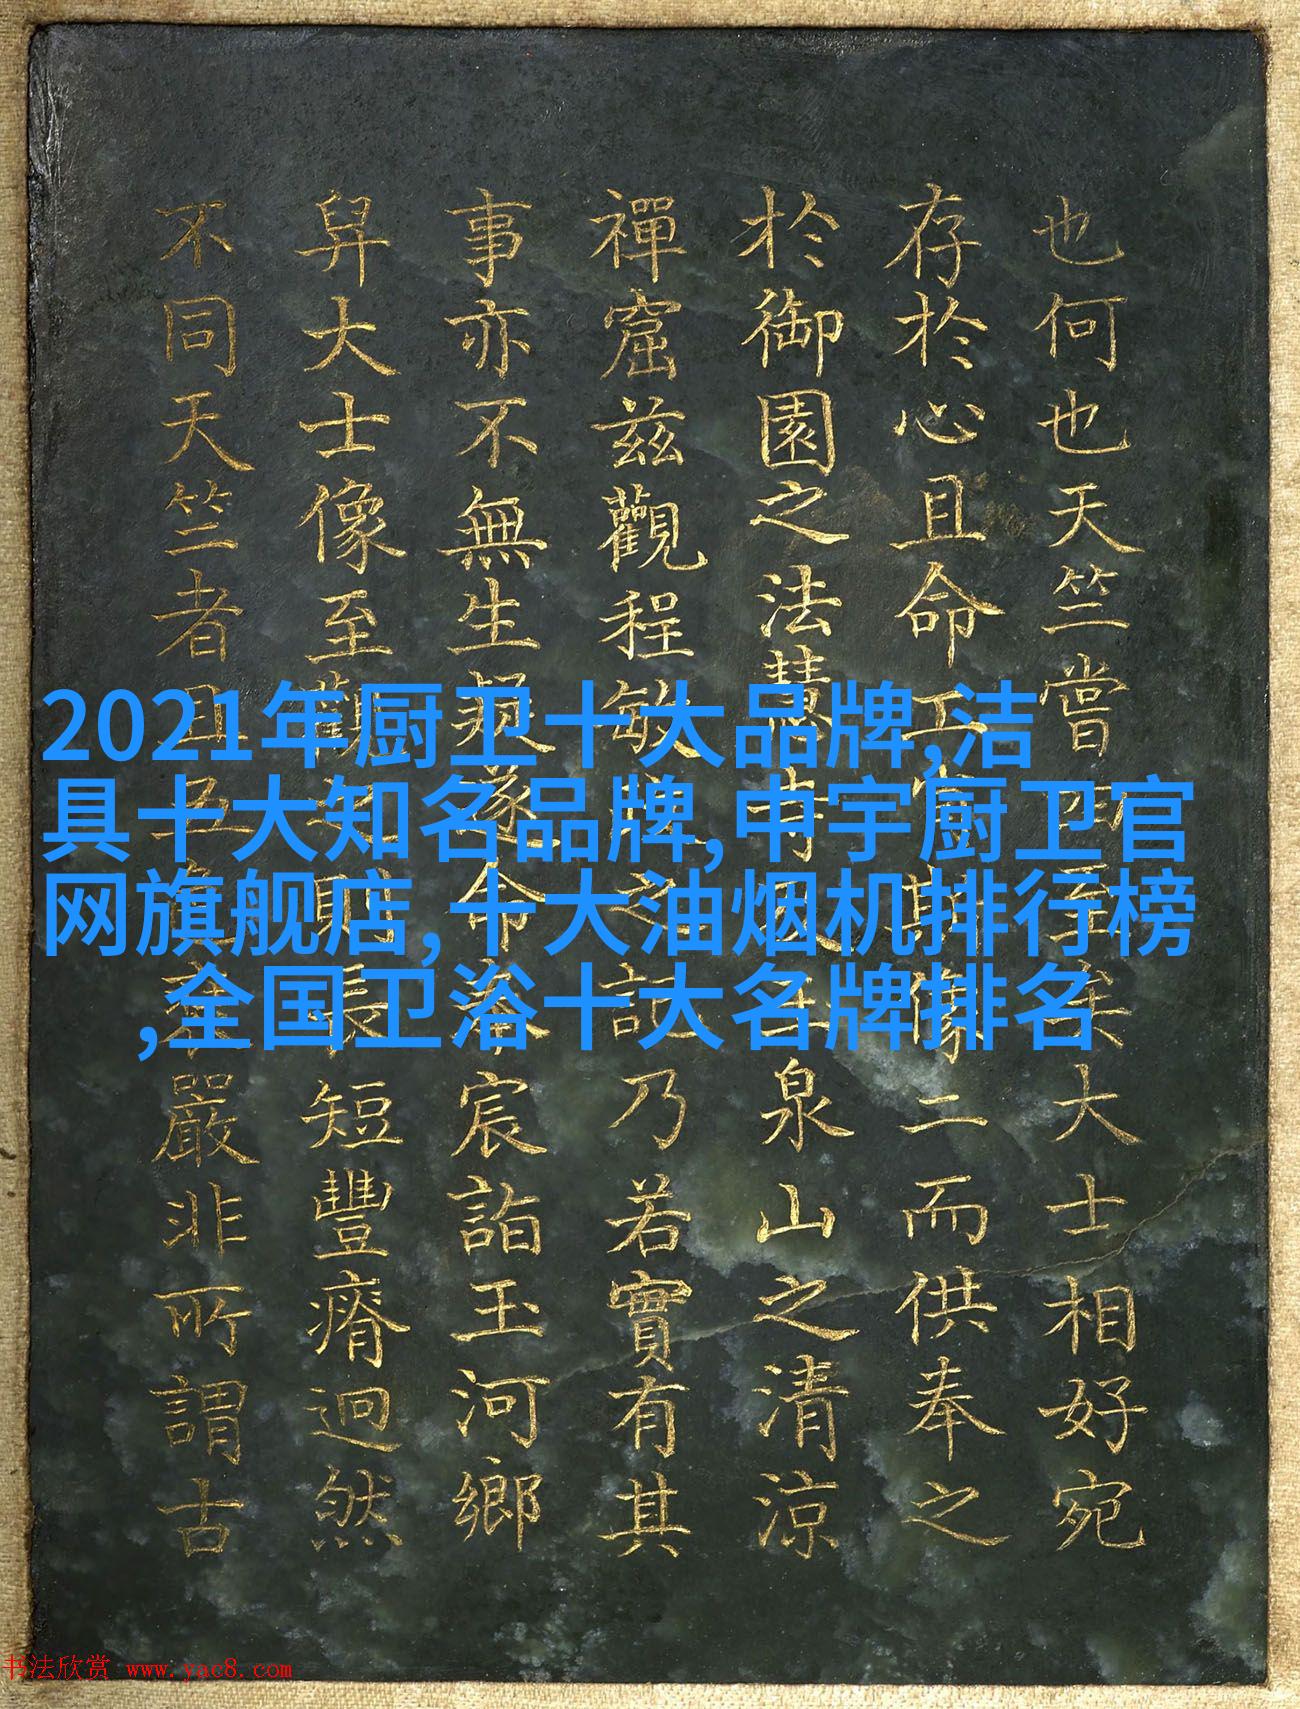 也何也天竺嘗至矣大士相好宛
存於心且命工像二而供奉之
於御園之法慧寺玉泉山之清涼
禪窟茲觀程敏政之記乃若實有其
事亦不無生疑遂命奉宸詣玉河鄉
舁大士像至觀之則長短豐瘠迥然
不同天竺者且五嚴非所謂古
2021年厨卫十大品牌,洁
具十大知名品牌,中宇厨卫官
网旗舰店,十大油烟机排行榜
,全国卫浴十大名牌排名
书法欣赏 www.yac8.com